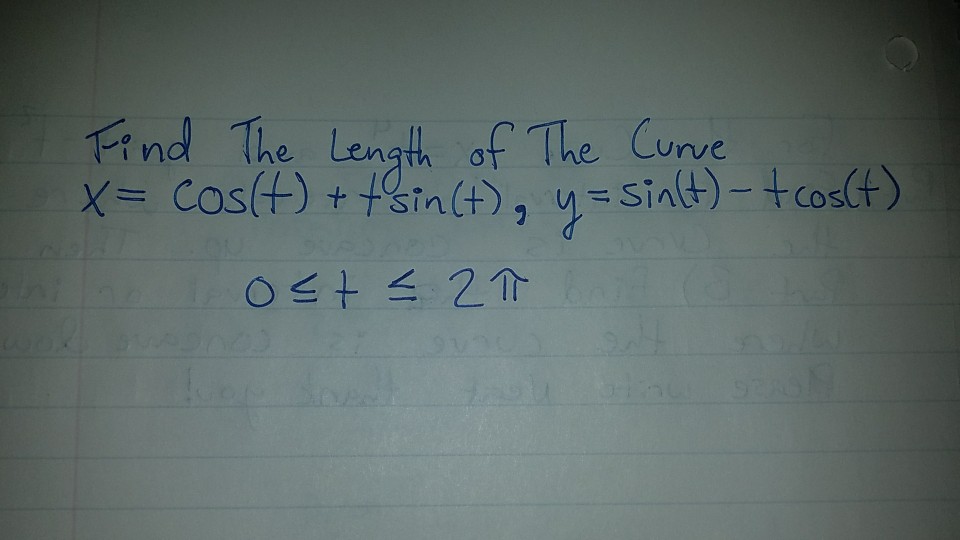 Find The Length of The Curve
x = cos(t) + tsin(t), y = sin(t) - tcos(t)
0 ≤ t ≤ 2π